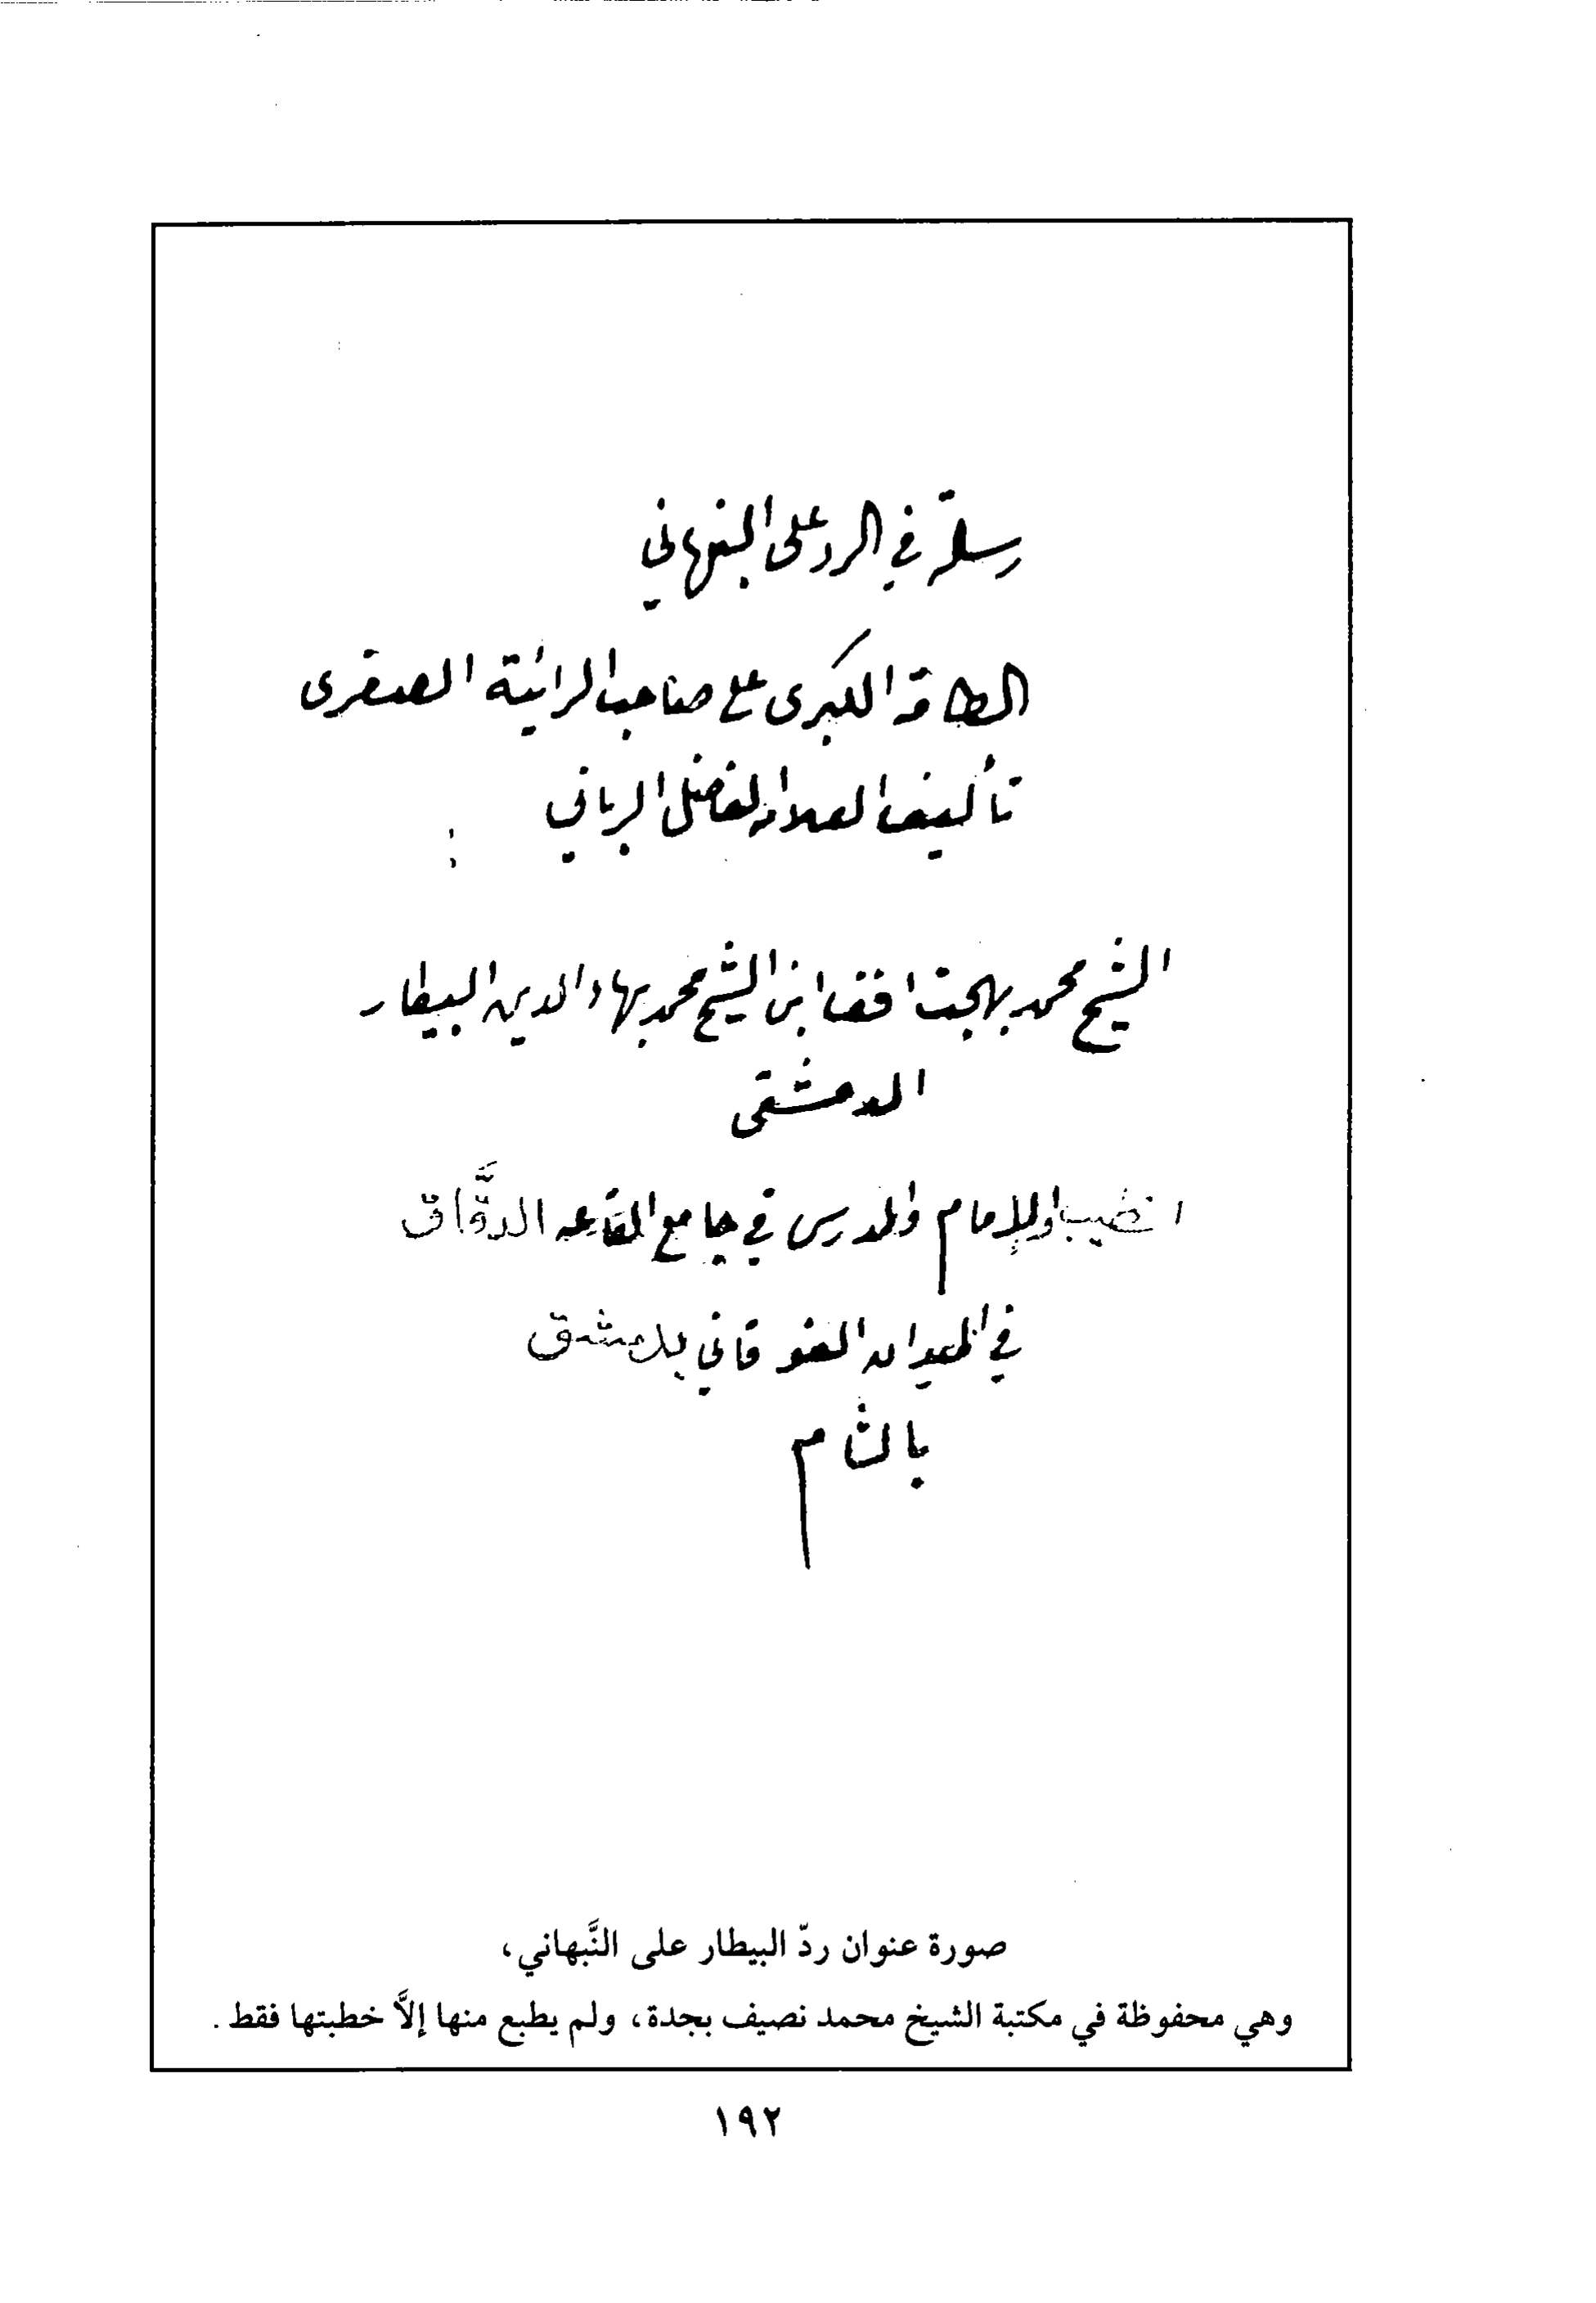 رسالة في الرد على النبهاني
الطامة الكبرى على صاحب الرائية الصغرى
تأليف العلامة الفاضل الرباني
الشيخ محمد بهجت افندي ابن الشيخ محمد بهاء الدين البيطار
الدمشقي
الخطيب والإمام والمدرس في جامع القاعة الدقَّاق
في الميدان الفوقاني بدمشق
بالشام
صورة عنوان ردّ البيطار على النَّبهاني،
وهي محفوظة في مكتبة الشيخ محمد نصيف بجدة، ولم يطبع منها إلاَّ خطبتها فقط.
١٩٢